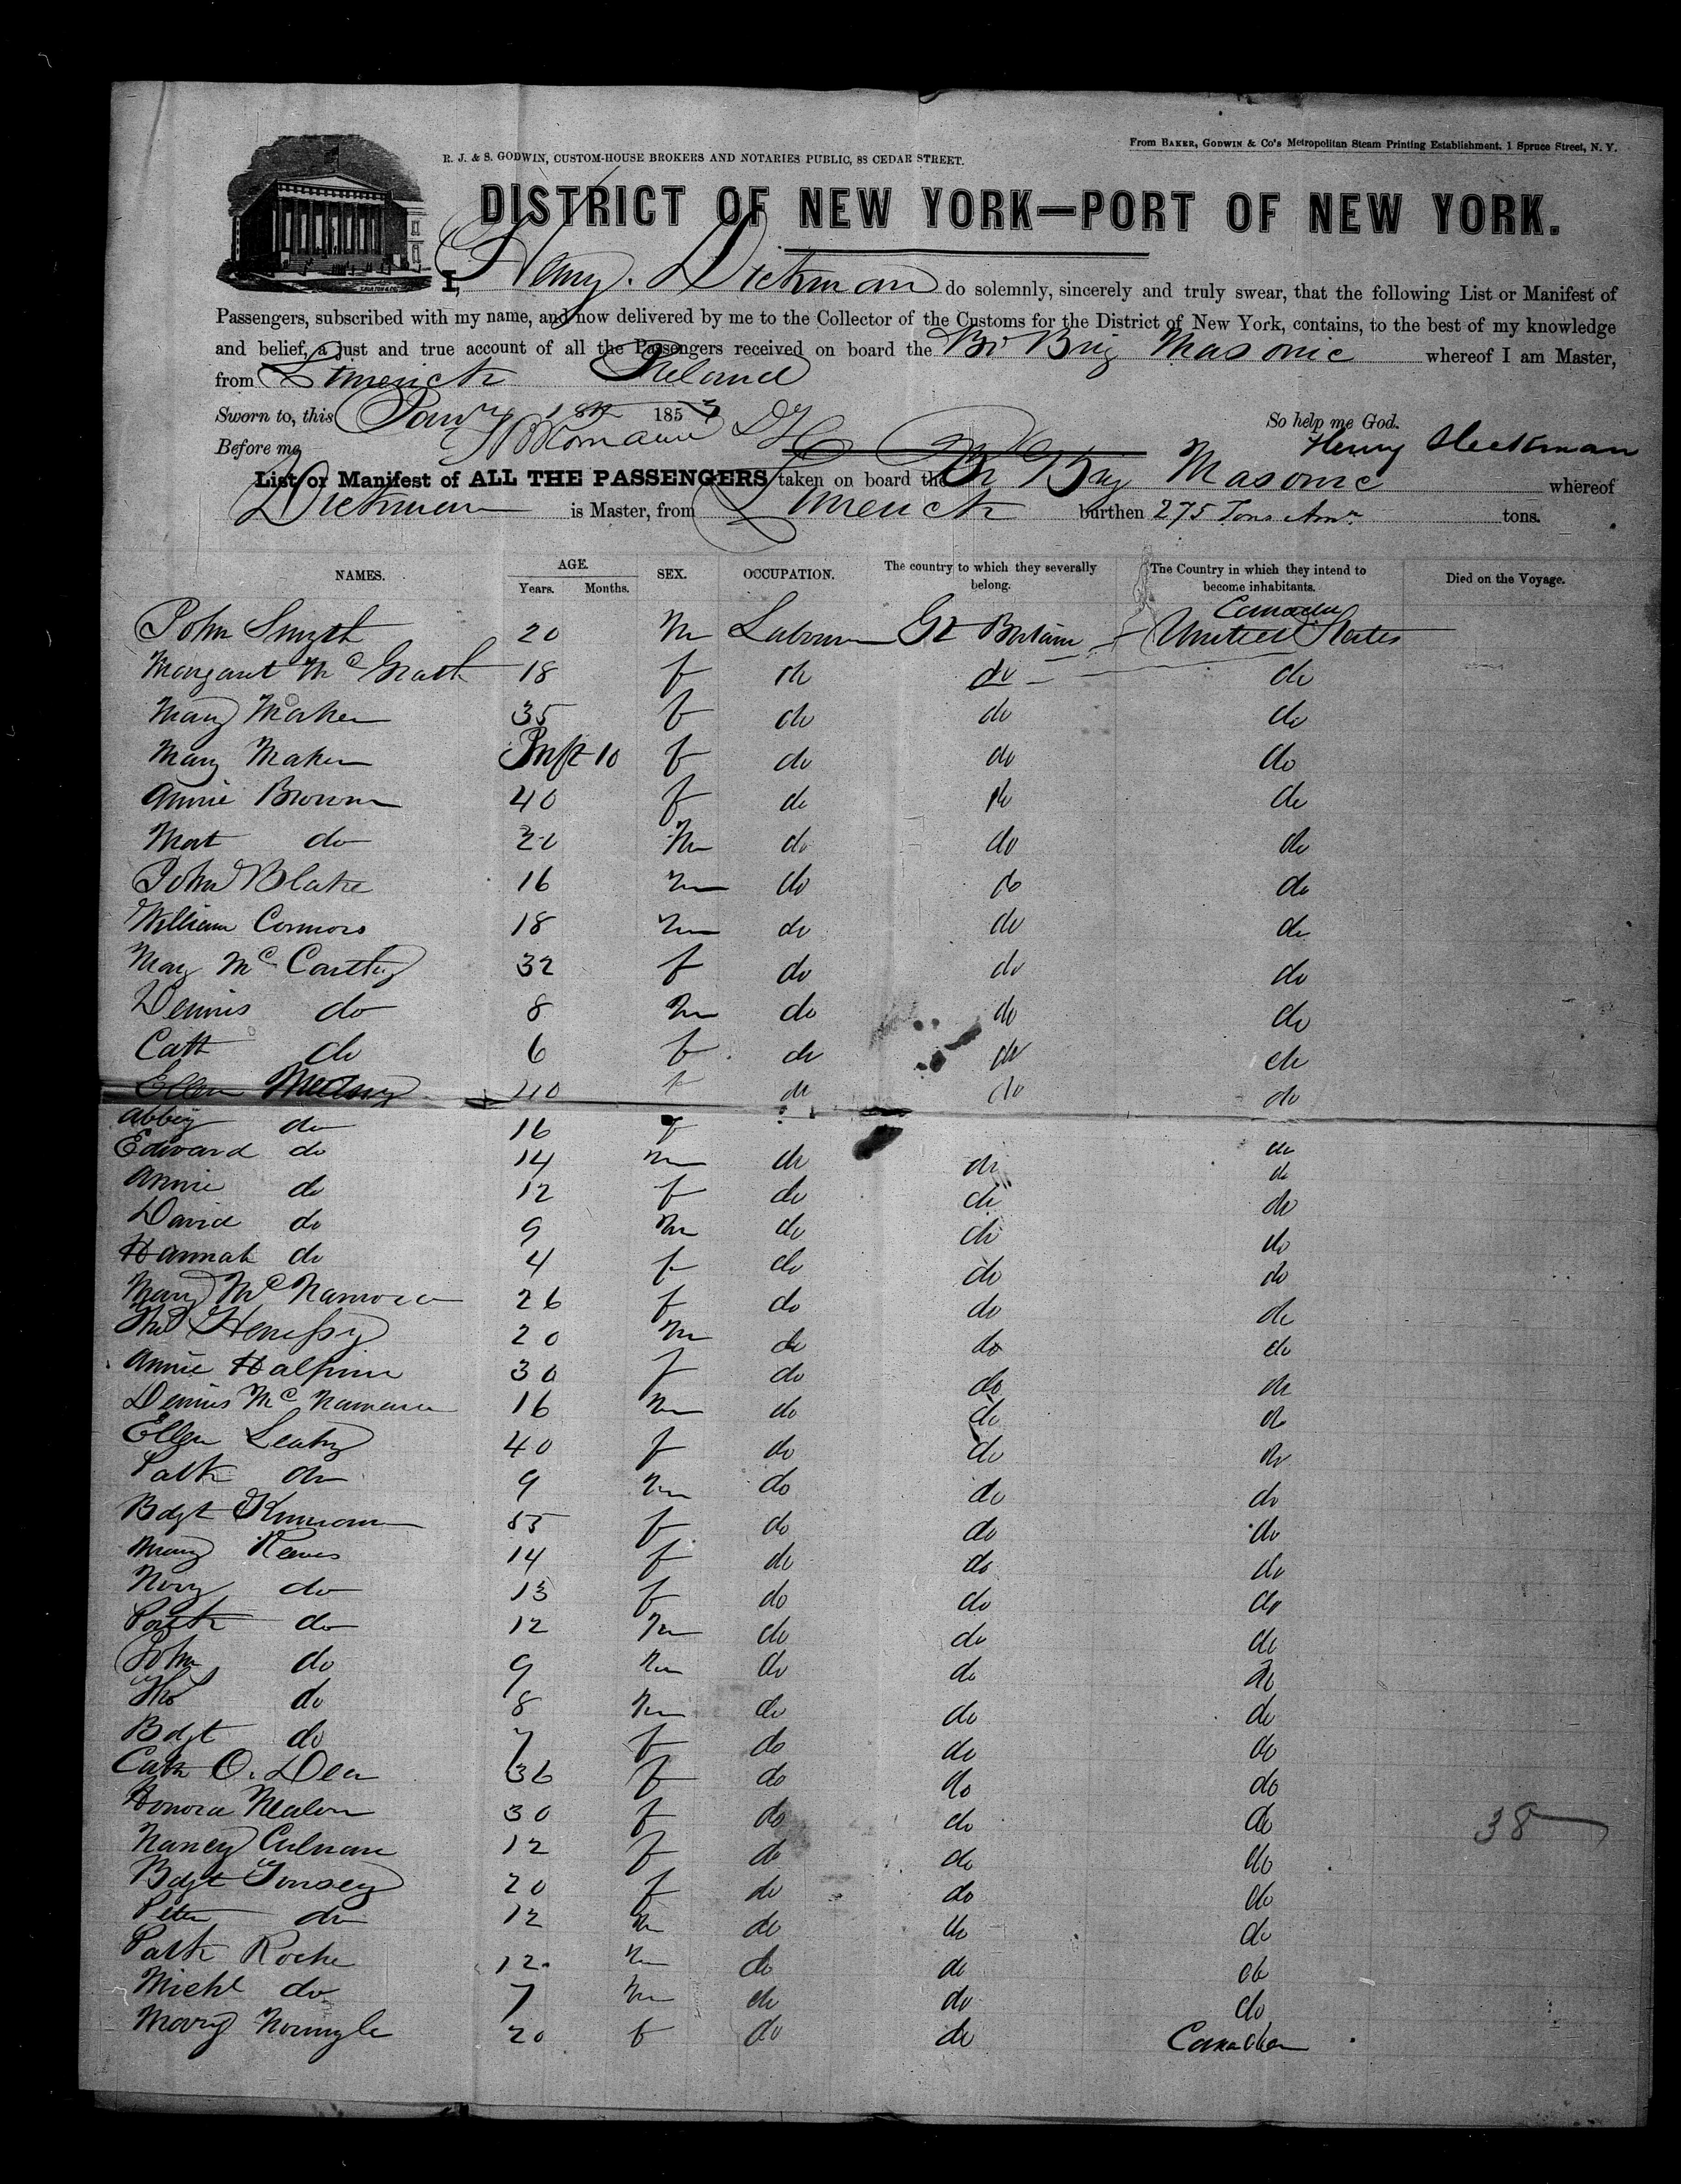 R. J. & S. GODWIN, CUSTOM-HOUSE BROKERS AND NOTARIES PUBLIC, 88 CEDAR STREET.
From BAKER, GODWIN & Co's Metropolitan Steam Printing Establishment, 1 Spruce Street, N. Y.
DISTRICT OF NEW YORK—PORT OF NEW YORK.
I, Henry. Dickman do solemnly, sincerely and truly swear, that the following List or Manifest of
Passengers, subscribed with my name, and now delivered by me to the Collector of the Customs for the District of New York, contains, to the best of my knowledge
and belief, a just and true account of all the Passengers received on board the Br Brig Masonic whereof I am Master,
from Limerick Ireland
Sworn to, this Jany 18th 1853 So help me God.
Before me Henry
List or Manifest of ALL THE PASSENGERS taken on board the Br Brig Masonic whereof
Dickman is Master, from Limerick burthen 275 Tons Amn. tons.
NAMES. AGE. Years. Months. SEX. OCCUPATION. The country to which they severally belong. The Country in which they intend to become inhabitants. Died on the Voyage.
Canada
John Smyth 20 m Labourer Gt Britain United States
Margaret McGrath 18 f do do do
Mary Maher 35 f do do do
Mary Maher Inft 10 f do do do
Annie Brown 40 f do do do
Mat do m do do do
John Blake 16 m do do do
William Connors 18 m do do do
Mary McCarthy 32 f do do do
Dennis do 8 m do do do
Cath do 6 f do do do
Ellen f do do do
Abbey do 16 f do
Edward do 14 m do do do
Annie do 12 f do do do
David do 9 m do do do
Hannah do 4 f do do do
Mary McNamara 26 f do do do
Thos Henessy 20 m do do do
Annie Halpine 30 f do do do
Dennis McNamara 16 m do do do
Ellen Leahy 40 f do do do
Patk do 9 m do do do
Bdgt f do do do
Mary Reeves 14 f do do do
Nory do 13 f do do do
Patk do 12 m do do do
John do 9 m do do do
Thos do 8 m do do do
Bdgt do 7 f do do do
Cath O. Dea 36 f do do do
Honora Nealon 30 f do do do 38
Nancy Culnane 12 f do do do
Bdgt 20 f do do do
Peter do 12 m do do do
Patk Roche 12 m do do do
Michl do 7 m do do do
Mary 20 f do do Canada